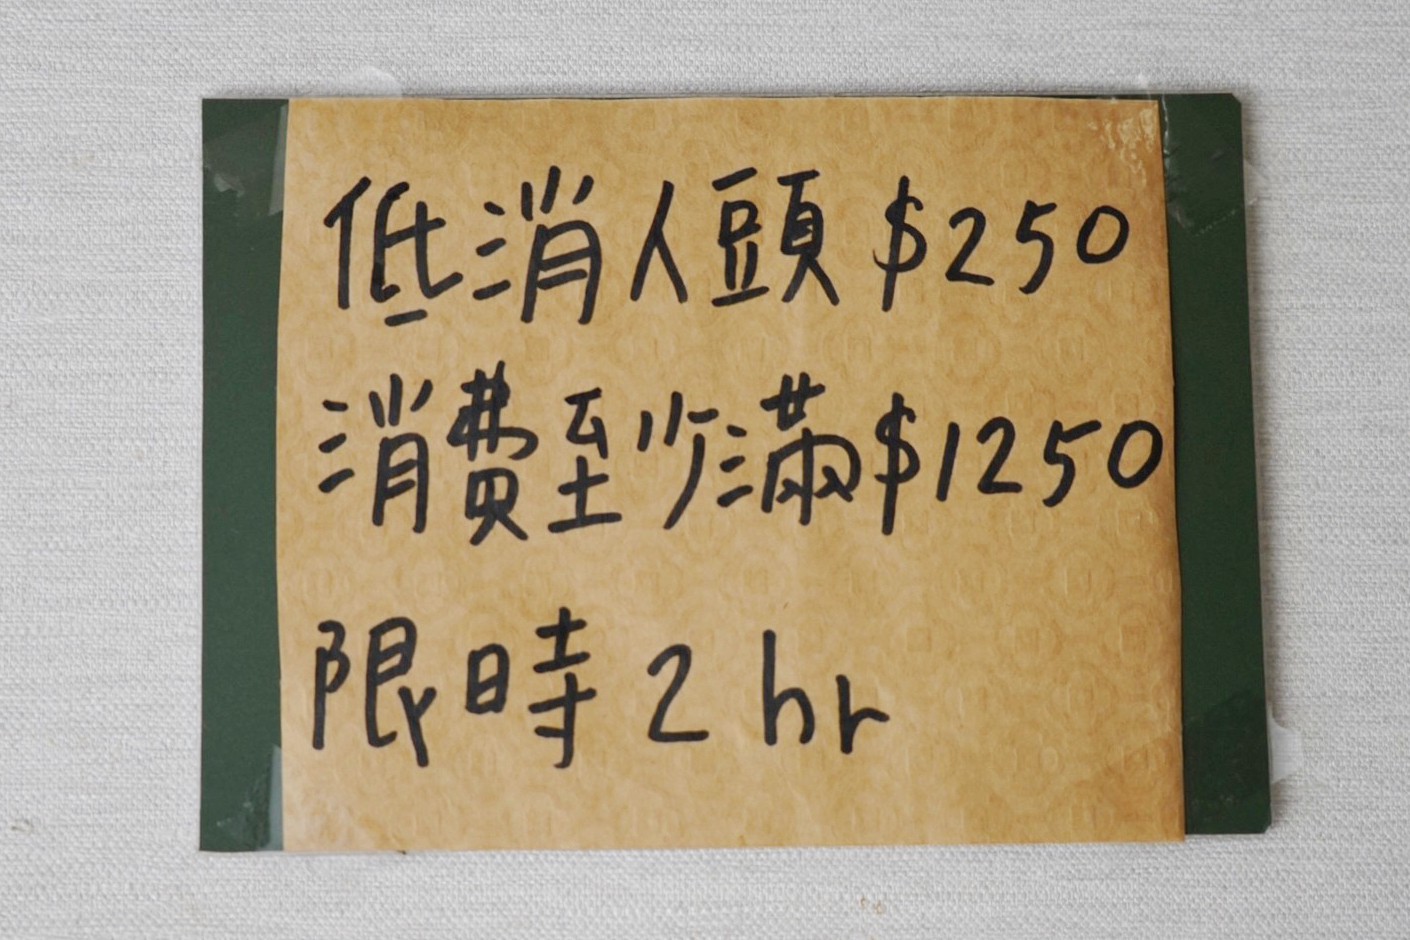 低消人頭$250
消費至少滿$1250
限時2hr